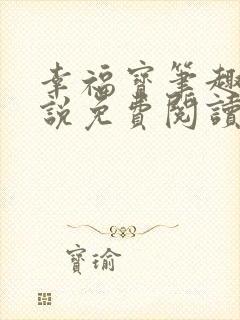 幸福寶筆趣
說免費閱讀
寶瑜